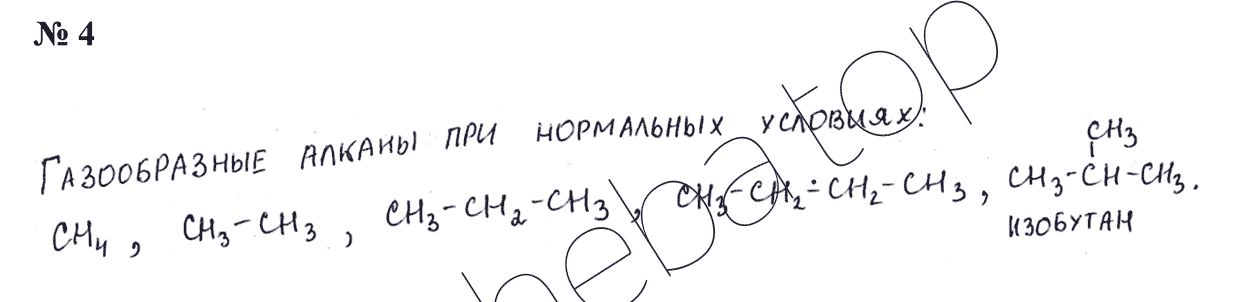 № 4
Газообразные алканы при нормальных условиях:
CH₄, CH₃-CH₃, CH₃-CH₂-CH₃, CH₃-CH₂-CH₂-CH₃, CH₃-CH-CH₃.
CH₃
изобутан
hebatop